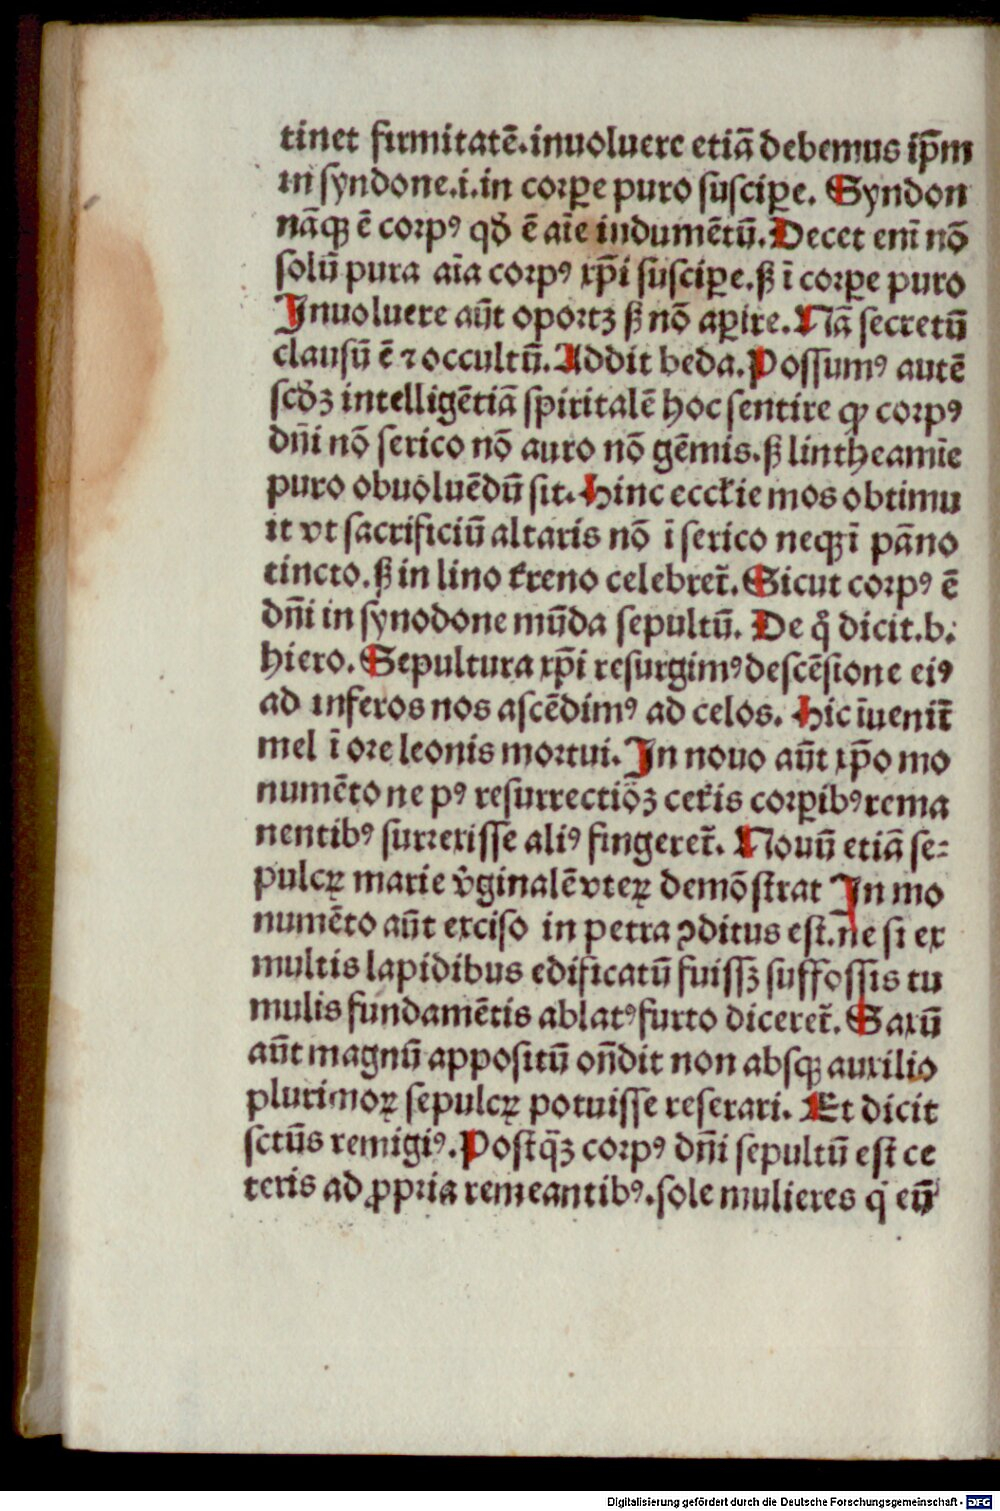 tinet firmitatē.inuoluere etiā debemus ip̄m
in syndone.i.in corꝑe puro suscipe. Syndon
nāqꝫ ē corpꝰ qd̓ ē aīe indumētū. Decet enī nō
solū pura aīa corpꝰ xp̄i susciꝑe.ß ī corꝑe puro
Inuoluere aūt oportꝫ ß nō aꝑire. Nā secretū
clausū ē ⁊ occultū. Addit beda. Possumꝰ autē
scd̓ꝫ intelligētiā spiritalē hoc sentire ꝙ corpꝰ
dn̄i nō serico nō auro nō gēmis.ß lintheamīe
puro obuoluēdū sit. Hinc eccl̄ie mos obtimu
it vt sacrificiū altaris nō ī serico neqꝫ ī pāno
tincto.ß in lino t̓reno celebret̄. Sicut corpꝰ ē
dn̄i in synodone mūda sepultū. De q̊ dicit.b.
hiero. Sepultura xp̄i resurgimꝰ descēsione eiꝰ
ad inferos nos ascēdimꝰ ad celos. Hic īuenit̄
mel ī ore leonis mortui. In nouo aūt xp̄o mo
numēto ne pꝰ resurrectiōꝫ cet̓is corꝑibꝰ rema
nentibꝰ surrexisse aliꝰ fingeret̄. Nouū etiā se-
pulcꝝ marie v̓ginalē vteꝝ demōstrat In mo
numēto aūt exciso in petra ꝯditus est.ne si ex
multis lapidibus edificatū fuissꝫ suffossis tu
mulis fundamētis ablatꝰ furto diceret̄. Saxū
aūt magnū appositū on̄dit non absqꝫ auxilio
plurimoꝝ sepulcꝝ potuisse reserari. Et dicit
sctūs remigiꝰ. Postq̄ꝫ corpꝰ dn̄i sepultū est ce
teris ad ꝓpria remeantibꝰ.sole mulieres q̇ eū